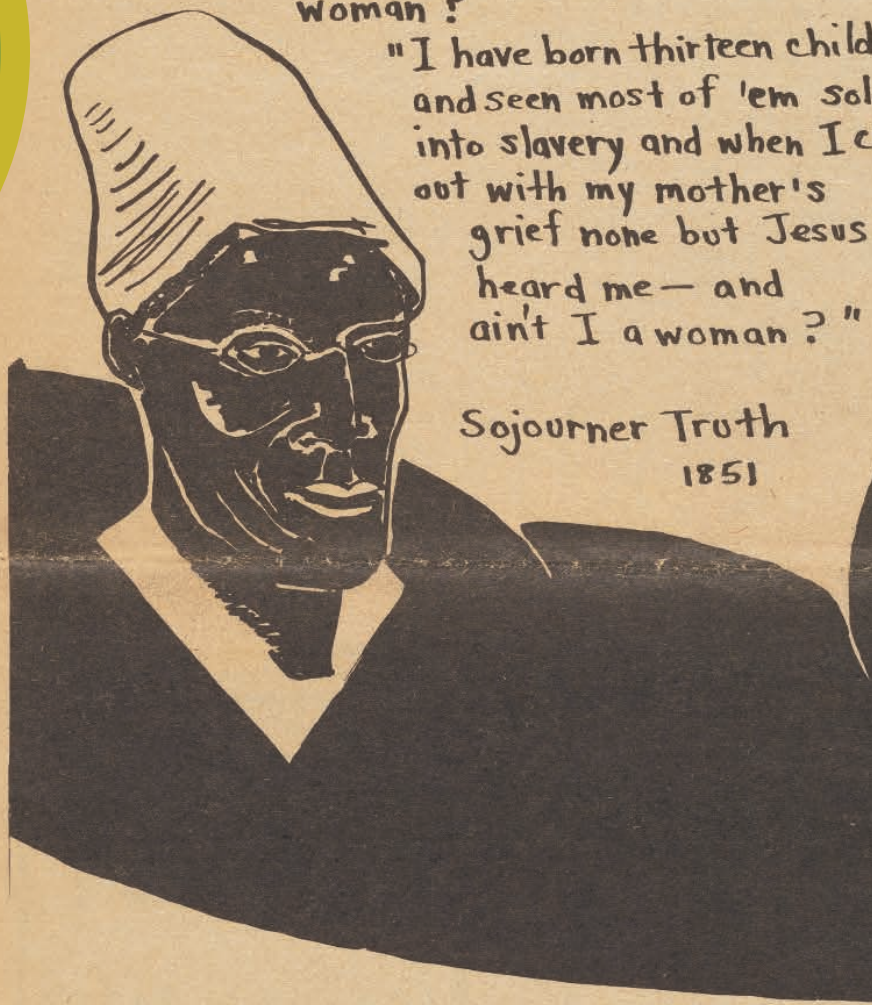 woman ?
"I have born thirteen child
and seen most of 'em sol
into slavery and when I c
out with my mother's
grief none but Jesus
heard me — and
ain't I a woman ? "
Sojourner Truth
1851